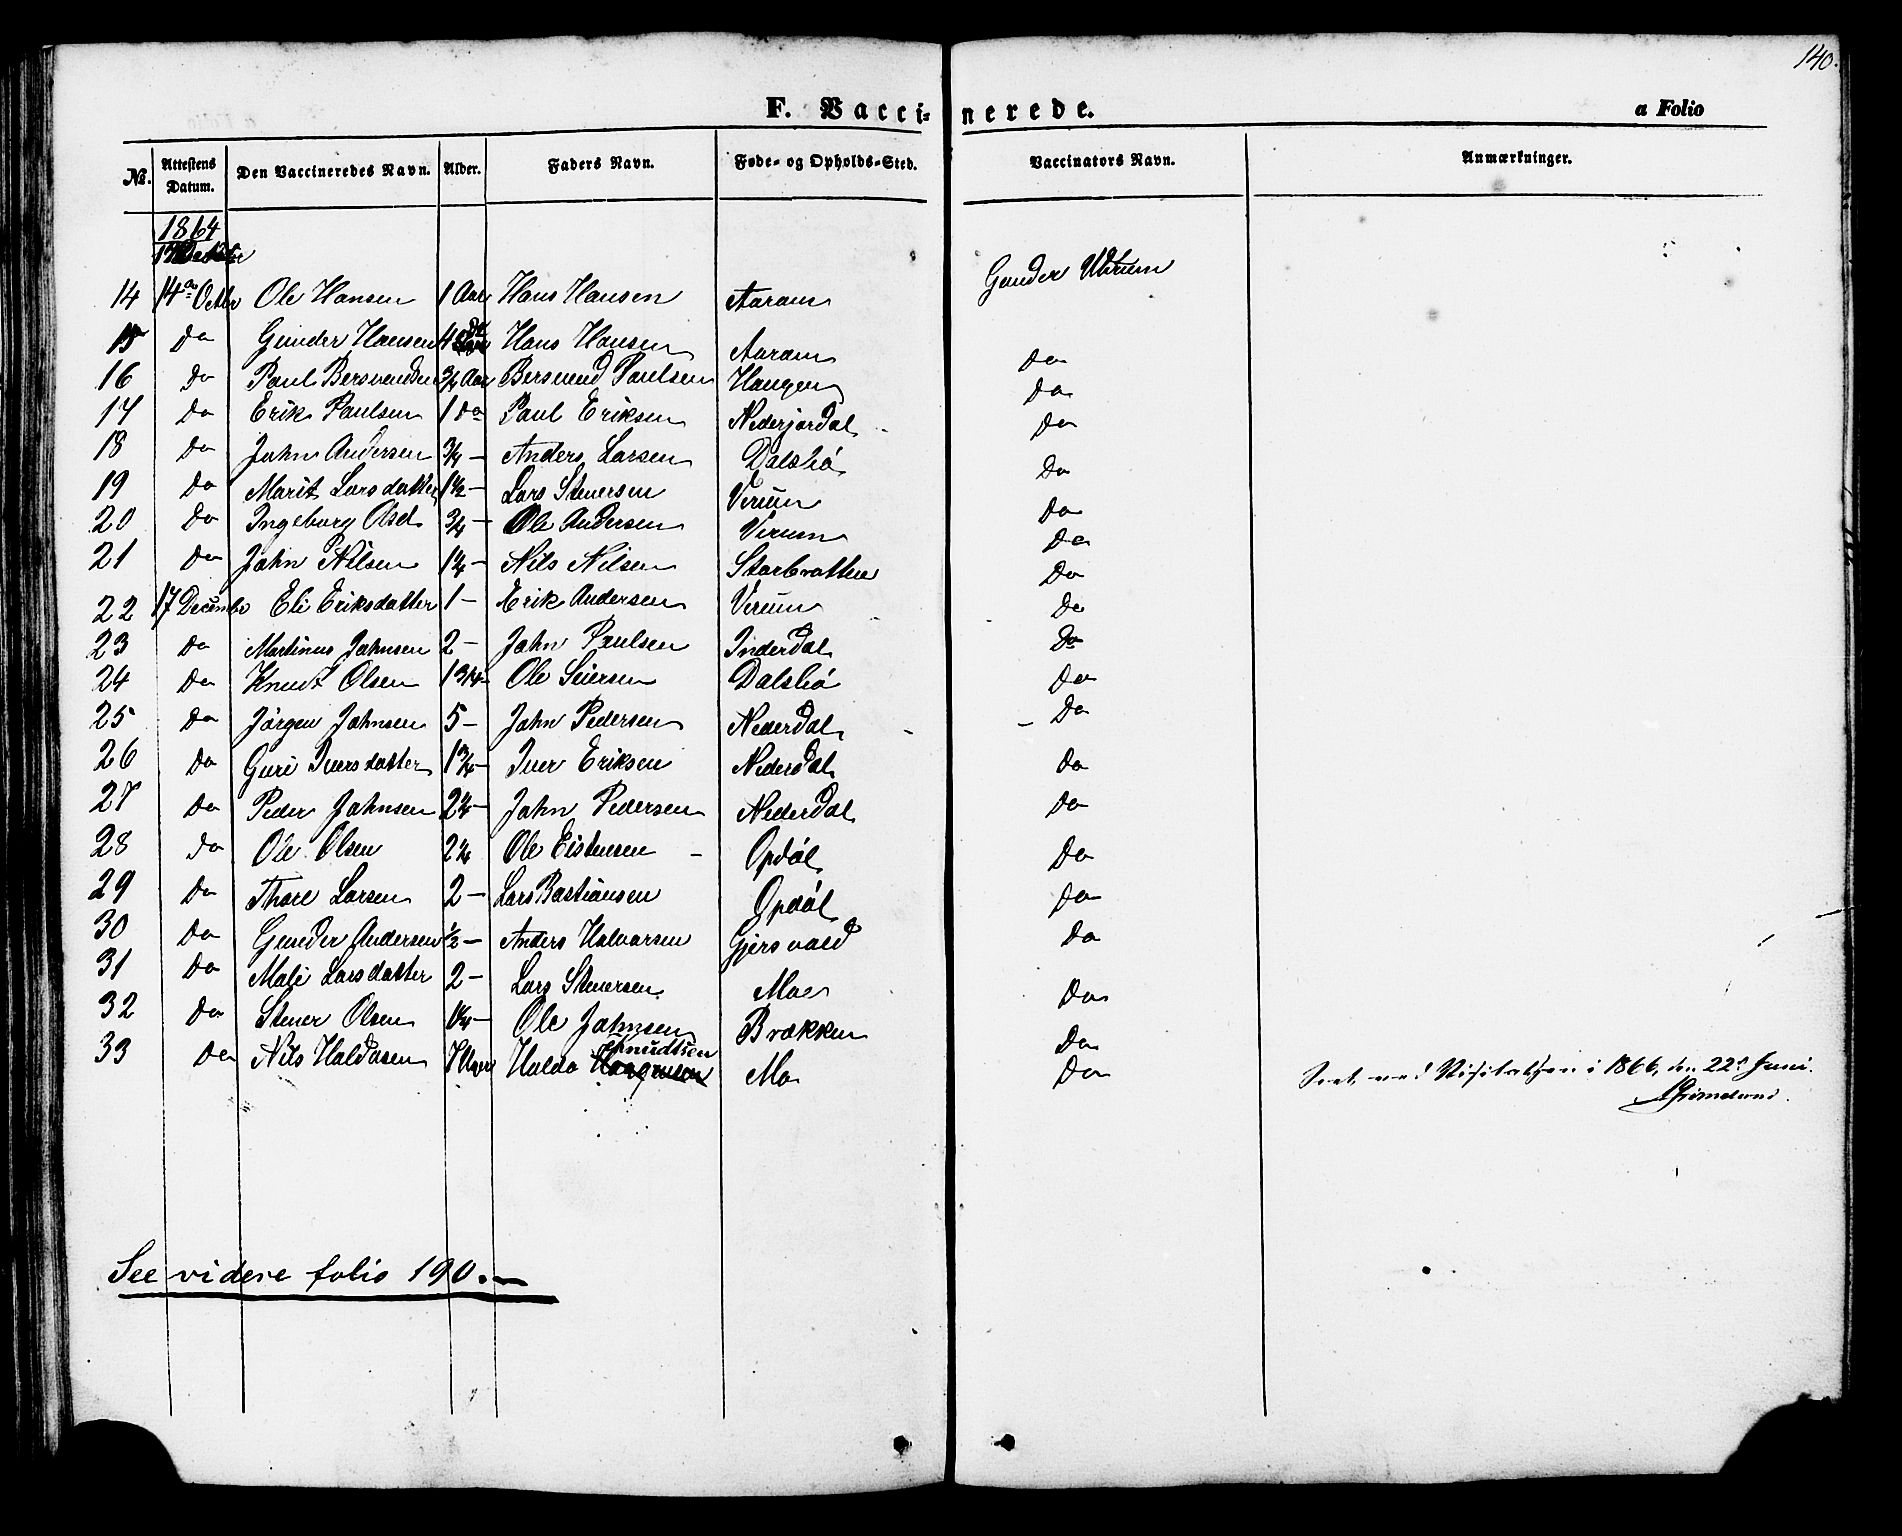 140.
F. Vaccinerede.
a Folio
No. Attestens Datum. Den Vaccineredes Navn. Alder. Faders Navn. Føde- og Opholds-Sted. Vaccinators Navn. Anmærkninger.
1864
14 14de Octbr Ole Hansen 1 Aar Hans Hansen Aaram Gunder
15 Do Gunder Hansen 4 Do Hans Hansen Aaram Do
16 Do Paul Bersvendsen 3/4 Aar Bersvend Paulsen Haugen Do
17 Do Erik Paulsen 1 Do Paul Eriksen Nederjordal Do
18 Do John Andersen 3/4 - Anders Larsen Dalsbø Do
19 Do Marit Larsdatter 1 1/2 - Lars Stenersen Virum Do
20 Do Ingeborg Olsd. 3/4 - Ole Andersen Virum Do
21 Do John Nilsen 1 1/4 - Nils Nilsen Storbratten Do
22 17 Decembr Eli Eriksdatter 1 - Erik Andersen Virum Do
23 Do Martinus Johnsen 2 - John Paulsen Inderdal Do
24 Do Knut Olsen 1 3/4 - Ole Seiersen Dalsbø Do
25 Do Jørgen Johnsen 5 - John Pedersen Nederdal - Do
26 Do Guri Iversdatter 1 3/4 - Iver Eriksen Nederdal Do
27 Do Peder Johnsen 2 1/4 - John Pedersen Nederdal Do
28 Do Ole Olsen 2 1/4 Ole Eistensen - Opdøl Do
29 Do Thore Larsen 2 - Lars Bastiansen Opdøl Do
30 Do Gunder Andersen 1/2 - Anders Halvorsen Gjersvold Do
31 Do Mali Larsdatter 2 - Lars Stenersen Moe Do
32 Do Stener Olsen 1 1/4 - Ole Johnsen Brækken Do
33 Do Nils Haldosen 7 Uger Haldo Knudtsen Mo Do
Seet ved Visitatsen i 1866, den 22d Juni.
See videre folio 190.-